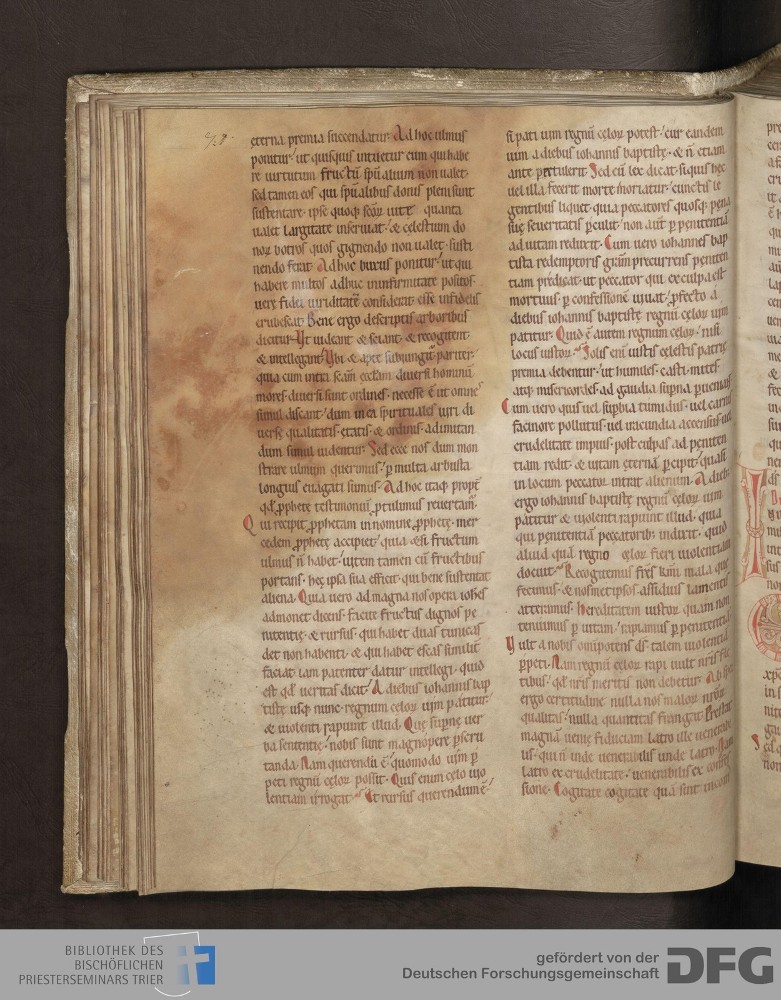 ęterna premia succendatur. Ad hoc ulmus
ponitur. ut quisquis intuetur eum qui habe
re uirtutum fructū spūalium non ualet.
sed tamen eos qui spūalibus donis pleni sunt
sustentare. ipse quoq; scōꝝ uitę quanta
ualet largitate inseruiat. & celestium do
noꝝ botros quos gignendo non ualet. susti
nendo ferat. Ad hoc buxus ponitur. ut qui
habere multos adhuc in infirmitate positos.
uere fidei uiriditatē considerat. esse infidelis
erubescat. Bene ergo descriptis arboribus
dicitur. Ut uideant & sciant. & recogitent.
& intellegant. Ubi & apte subiungit͛ pariter.
quia cum intra scam̄ ęcclam̄ diuersi hominū
mores. diuersi sunt ordines. necesse ē ut omnes
simul discant. dum in ea spirituales uiri di
uersę qualitatis. etatis. & ordinis. ad imitan
dum simul uidentur. Sed ecce nos dum mon
strare ulmum querimus. ꝑ multa arbusta
longius euagati sumus. Ad hoc itaq; propt̄
qd̄ ꝓphetę testimoniū ꝓtulimus reuertam͛.
Qui recipit ꝓphetam in nomine ꝓphetę. mer
cedem ꝓphetę accipiet. quia & si fructum
ulmus n̄ habet. uitem tamen cū fructibus
portans. hęc ipsa sua efficit. qui bene sustentat
aliena. Quia uero ad magna nos opera ioh̄es
admonet dicens. facite fructus dignos pe
nitentię. & rursus. qui habet duas tunicas
det non habenti. & qui habet escas similit̄
faciat. iam patenter datur intellegi. quid
est qd̄ ueritas dicit. A diebus iohannis bap
tistę usq; nunc. regnum celoꝝ uim patitur.
& uiolenti rapiunt illud. Quę supnę uer
ba sententię. nobis sunt magnopere ꝑscru
tanda. Nam querendū ē. quomodo uim ꝑ
peti regnū cęloꝝ possit. Quis enim celo uio
lentiam irrogat. Et rursus querendum ē.
si pati uim regnū cęloꝝ potest. cur eandem
uim a diebus iohannis baptistę. & n̄ etiam
ante ꝑtulerit. Sed cū lex dicat. siquis hęc
uel illa fecerit morte moriatur. cunctis le
gentibus liquet. quia peccatores quosq; pęna
suę seueritatis ꝑculit. non aūt ꝑ penitentiā
ad uitam reduxit. Cum uero iohannes bap
tista redemptoris gr̄am precurrens peniten
tiam predicat. ut peccator qui ex culpa est
mortuus. ꝑ confessionē uiuat. ꝓfecto a
diebus iohannis baptistę regnū cęloꝝ uim
patitur. Quid ē autem regnum celoꝝ. nisi
locus iustoꝝ. Solis enī iustis cęlestis patrię
premia debentur. ut humiles. casti. mites.
atq; misericordes. ad gaudia suꝑna ꝑueniant
Cum uero quis uel suꝑbia tumidus. uel carnis
facinore pollutus. uel iracundia accensus. uel
crudelitate impius. post culpas ad peniten
tiam redit. & uitam ęternā percipit. quasi
in locum peccator intrat alienum. A diebus
ergo iohannis baptistę regnū cęloꝝ uim
patitur. & uiolenti rapiunt illud. quia
qui penitentiā peccatorib; indixit. quid
aliud quā regno cęloꝝ fieri uiolentiam
docuit. Recogitemus frēs kmī mala que
fecimus. & nosmetipsos assiduis lamentis
atteramus. Hereditatem iustoꝝ quam non
tenuimus ꝑ uitam. rapiamus ꝑ penitentiā.
Vult a nobis omnipotens ds̄ talem uiolentiā
ꝑpeti. Nam regnū cęloꝝ rapi uult nr̄is fle
tibus. qd̄ nr̄is meritis non debetur. Ab hac
ergo certitudine nulla nos maloꝝ nr̄oꝝ
qualitas. nulla quantitas frangit. Prestat
magnā uenię fiduciam latro ille uenerabi
lis. qui n̄ inde uenerabilis unde latro. Nam
latro ex crudelitate. uenerabilis ex confes
sione. Cogitate cogitate quā sint incom
BIBLIOTHEK DES
BISCHÖFLICHEN
PRIESTERSEMINARS TRIER
gefördert von der
Deutschen Forschungsgemeinschaft
DFG